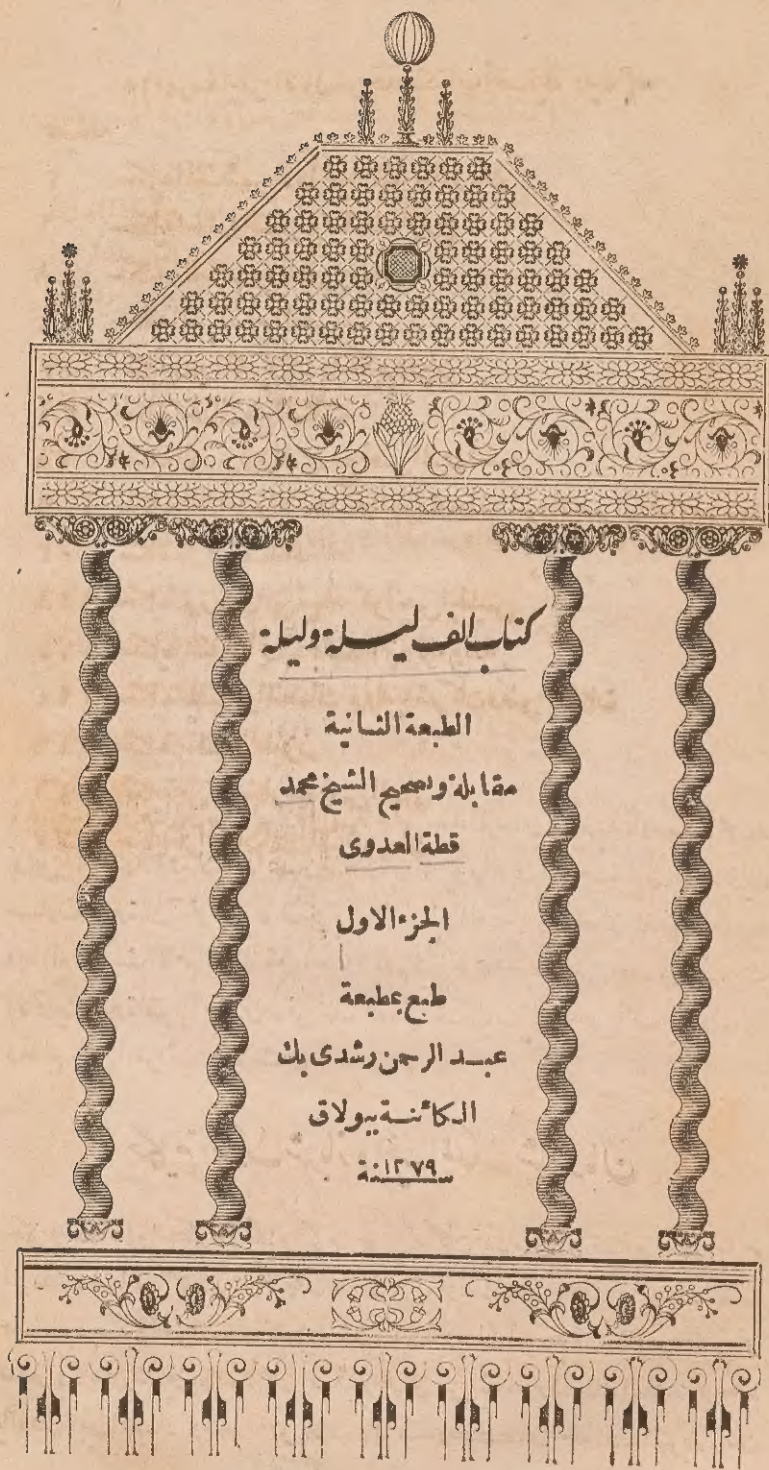 كتاب الف ليلة وليلة
الطبعة الثانية
مقابلة وتصحيح الشيخ محمد
قطة العدوى
الجزء الاول
طبع بمطبعة
عبد الرحمن رشدى بك
الكائنة ببولاق
سنة ١٢٧٩